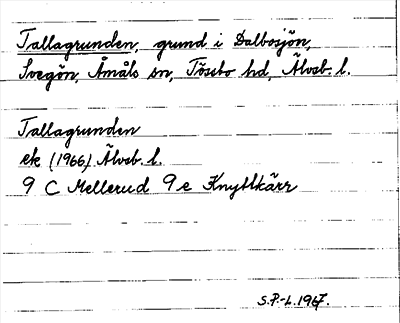 Tallagrunden, grund i Dalbosjön,
Svegön, Åmåls sn, Tössbo hd, Älvsb. l.
Tallagrunden
ek (1966) Älvsb. l.
9 C Mellerud 9e Knyttkärr
S.P-L. 1967.